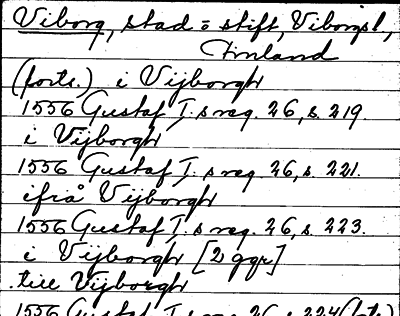 Viborg, stad o stift, Viborgsl.,
Finland
(forts.) i Vijborgh
1556 Gustaf I:s reg. 26, s. 219.
i Vijborgh
1556 Gustaf I:s reg. 26, s. 221.
ifrå Vijborgh
1556 Gustaf I:s reg. 26, s. 223.
i Vijborgh [2 ggr]
till Vijborgh
1556 Gustaf I:s reg. 26, s. 224 (forts.)